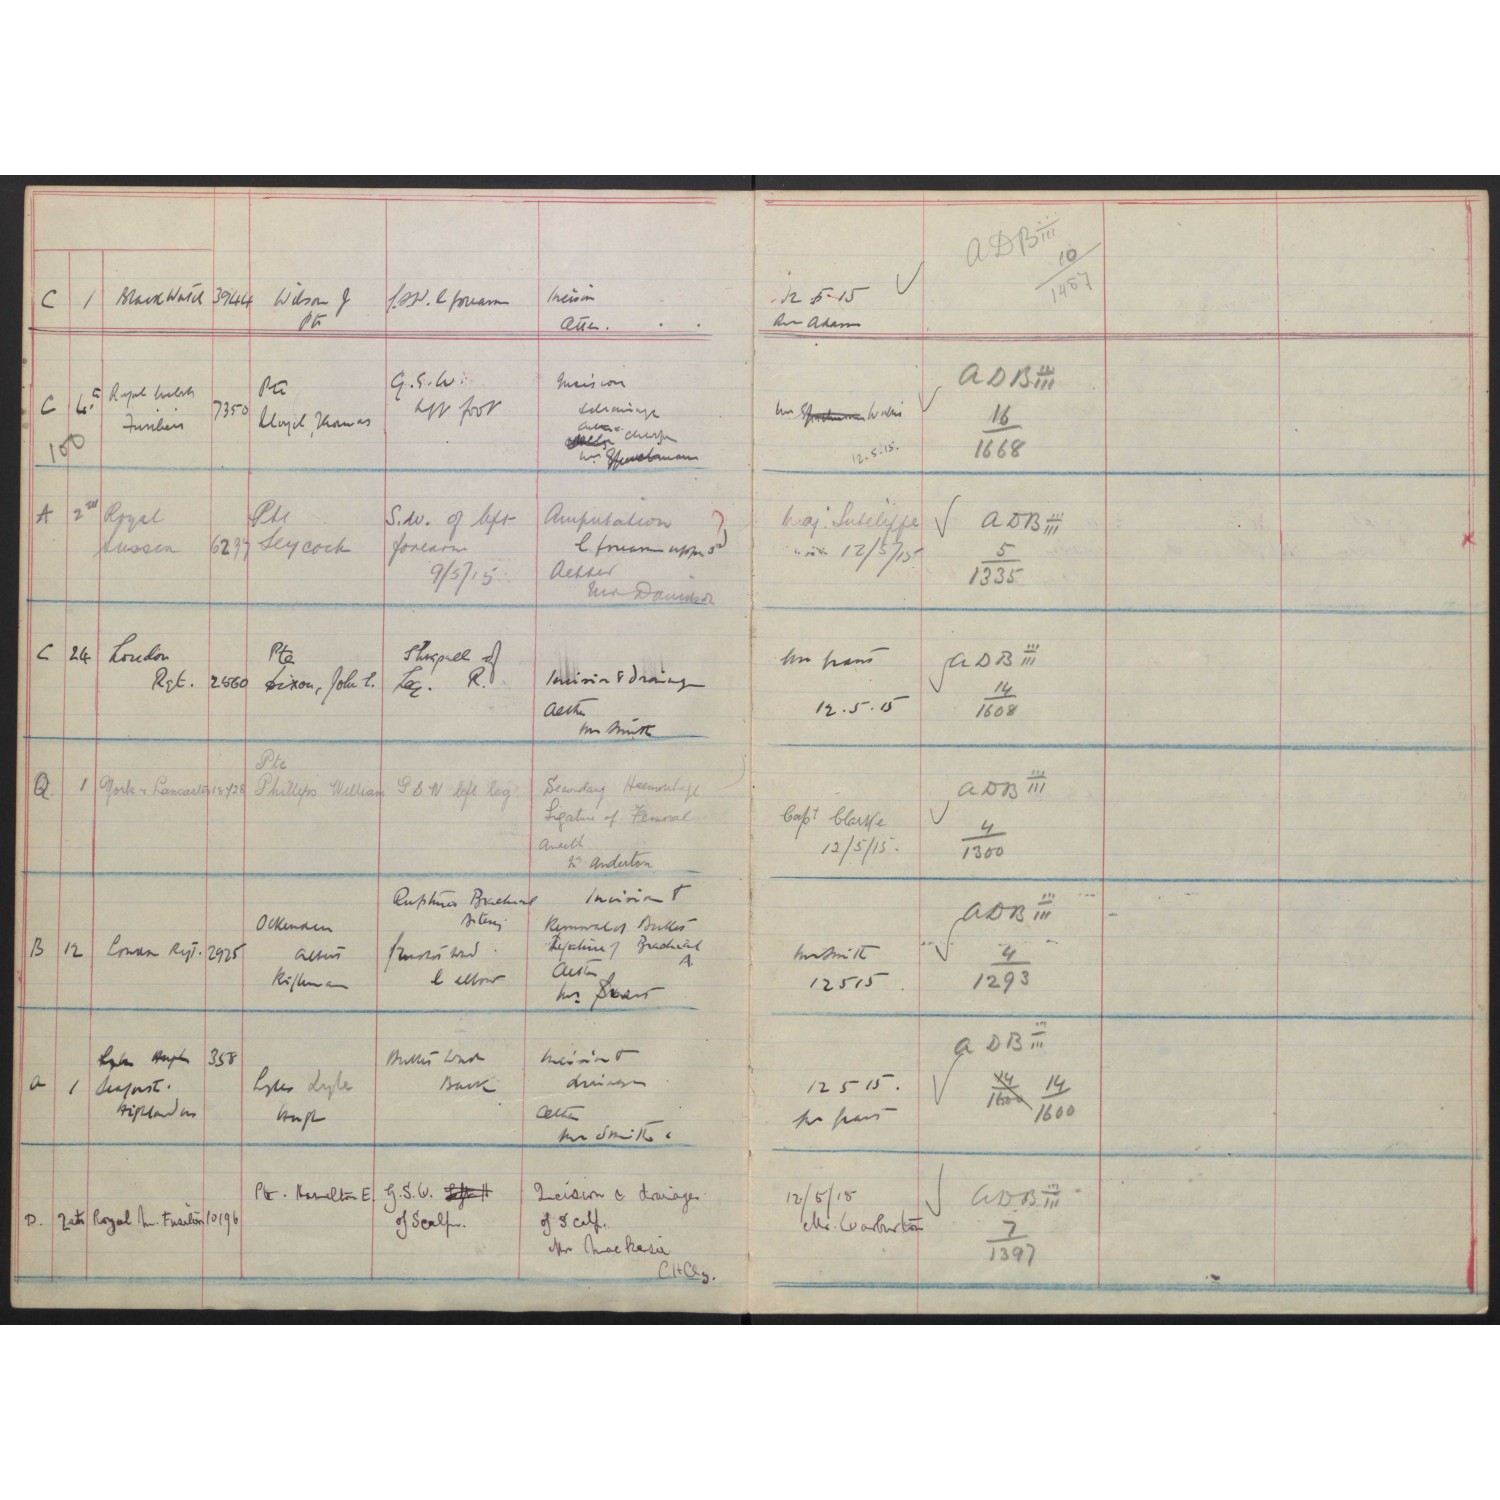 C 1 Black Watch Wilson J G.S.W. L forearm Incision 12 5-15 ✓ ADB iii/III 10/1457
Pte Aeth. Mr Adams
C 4th Royal Welsh Fusiliers 7350 Pte Lloyd, Thomas G.S.W. left foot Incision ADB iii/III
100 drainage 16/1668
Mr 12.5.15.
A 2nd Royal Pte S.W. of left Amputation Maj. Sutcliffe ✓ ADB iii/III
Sussex 6237 Leycock forearm L forearm upper 3rd 12/5/15 5/1335
9/5/15 Aether
Mr Davidson
C 24 London Pte Shrapnel of Mr Grant ADB iii/III
Rgt. 2560 Dixon, John L. Leg. R. Incision & drainage 14/1608
Aether 12.5.15
Mr Smith
Q. 1 York & Lancaster Pte
Phillips William G S W left leg Secondary Haemorrhage ADB iii/III
Ligature of Femoral Capt Clarke 4/1300
Anesth 12/5/15.
Mr Anderton
B 12 London Rgt. 2925 Ockenden Ruptured Brachial Artery Incision & ADB iii/III
Albert Removal of Bullet
Rifleman L elbow Ligature of Brachial A. Mr Smith 4/1293
Aether 12 5 15
Mr Grant
A 1 358 Bullet Wound Incision & ADB iii/III
Seafort. Lyle Back drainage 12 5 15. 14/1600 14/1600
Highlanders Hugh Aether Mr Grant
Mr Smith
D. 2nd Royal M. Fusiliers 10196 Pte. Hamilton E. G.S.W. Incision & drainage 12/5/15 ✓ ADB iii/III
of Scalp. of Scalp. Mr. Warburton 7/1397
Mr Mackenzie